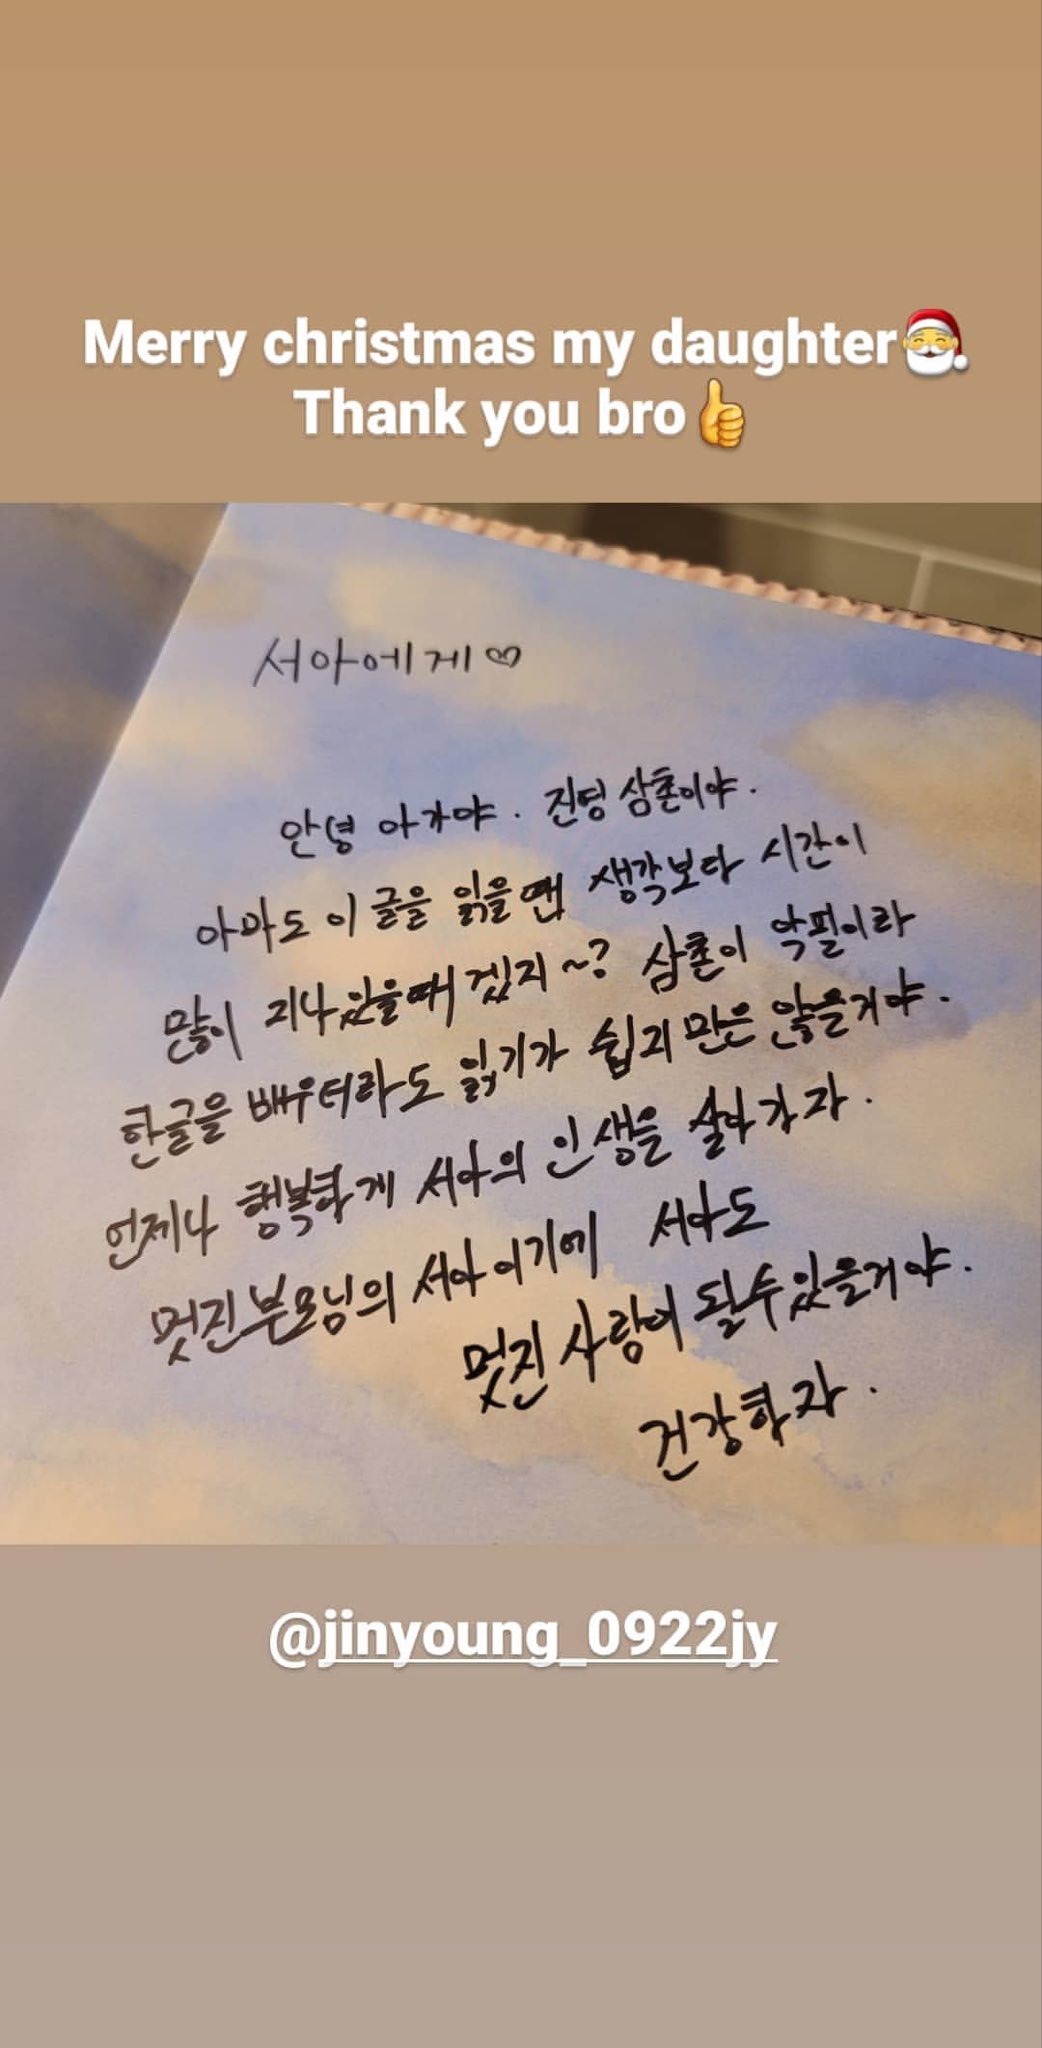 Merry christmas my daughter🎅
Thank you bro👍
서아에게♡
안녕 아가야. 진덩 삼촌이야.
아마도 이 글을 읽을 땐 생각보다 시간이
많이 지나있을때겠지~? 삼촌이 악필이라
한글을 배우터라도 읽기가 쉽지만은 않을거야.
언제나 행복하게 서아의 인생을 살아가자.
멋진 부모님의 서아이기에 서아도
멋진 사람이 될 수 있을거야.
건강하자.
@jinyoung_0922jy